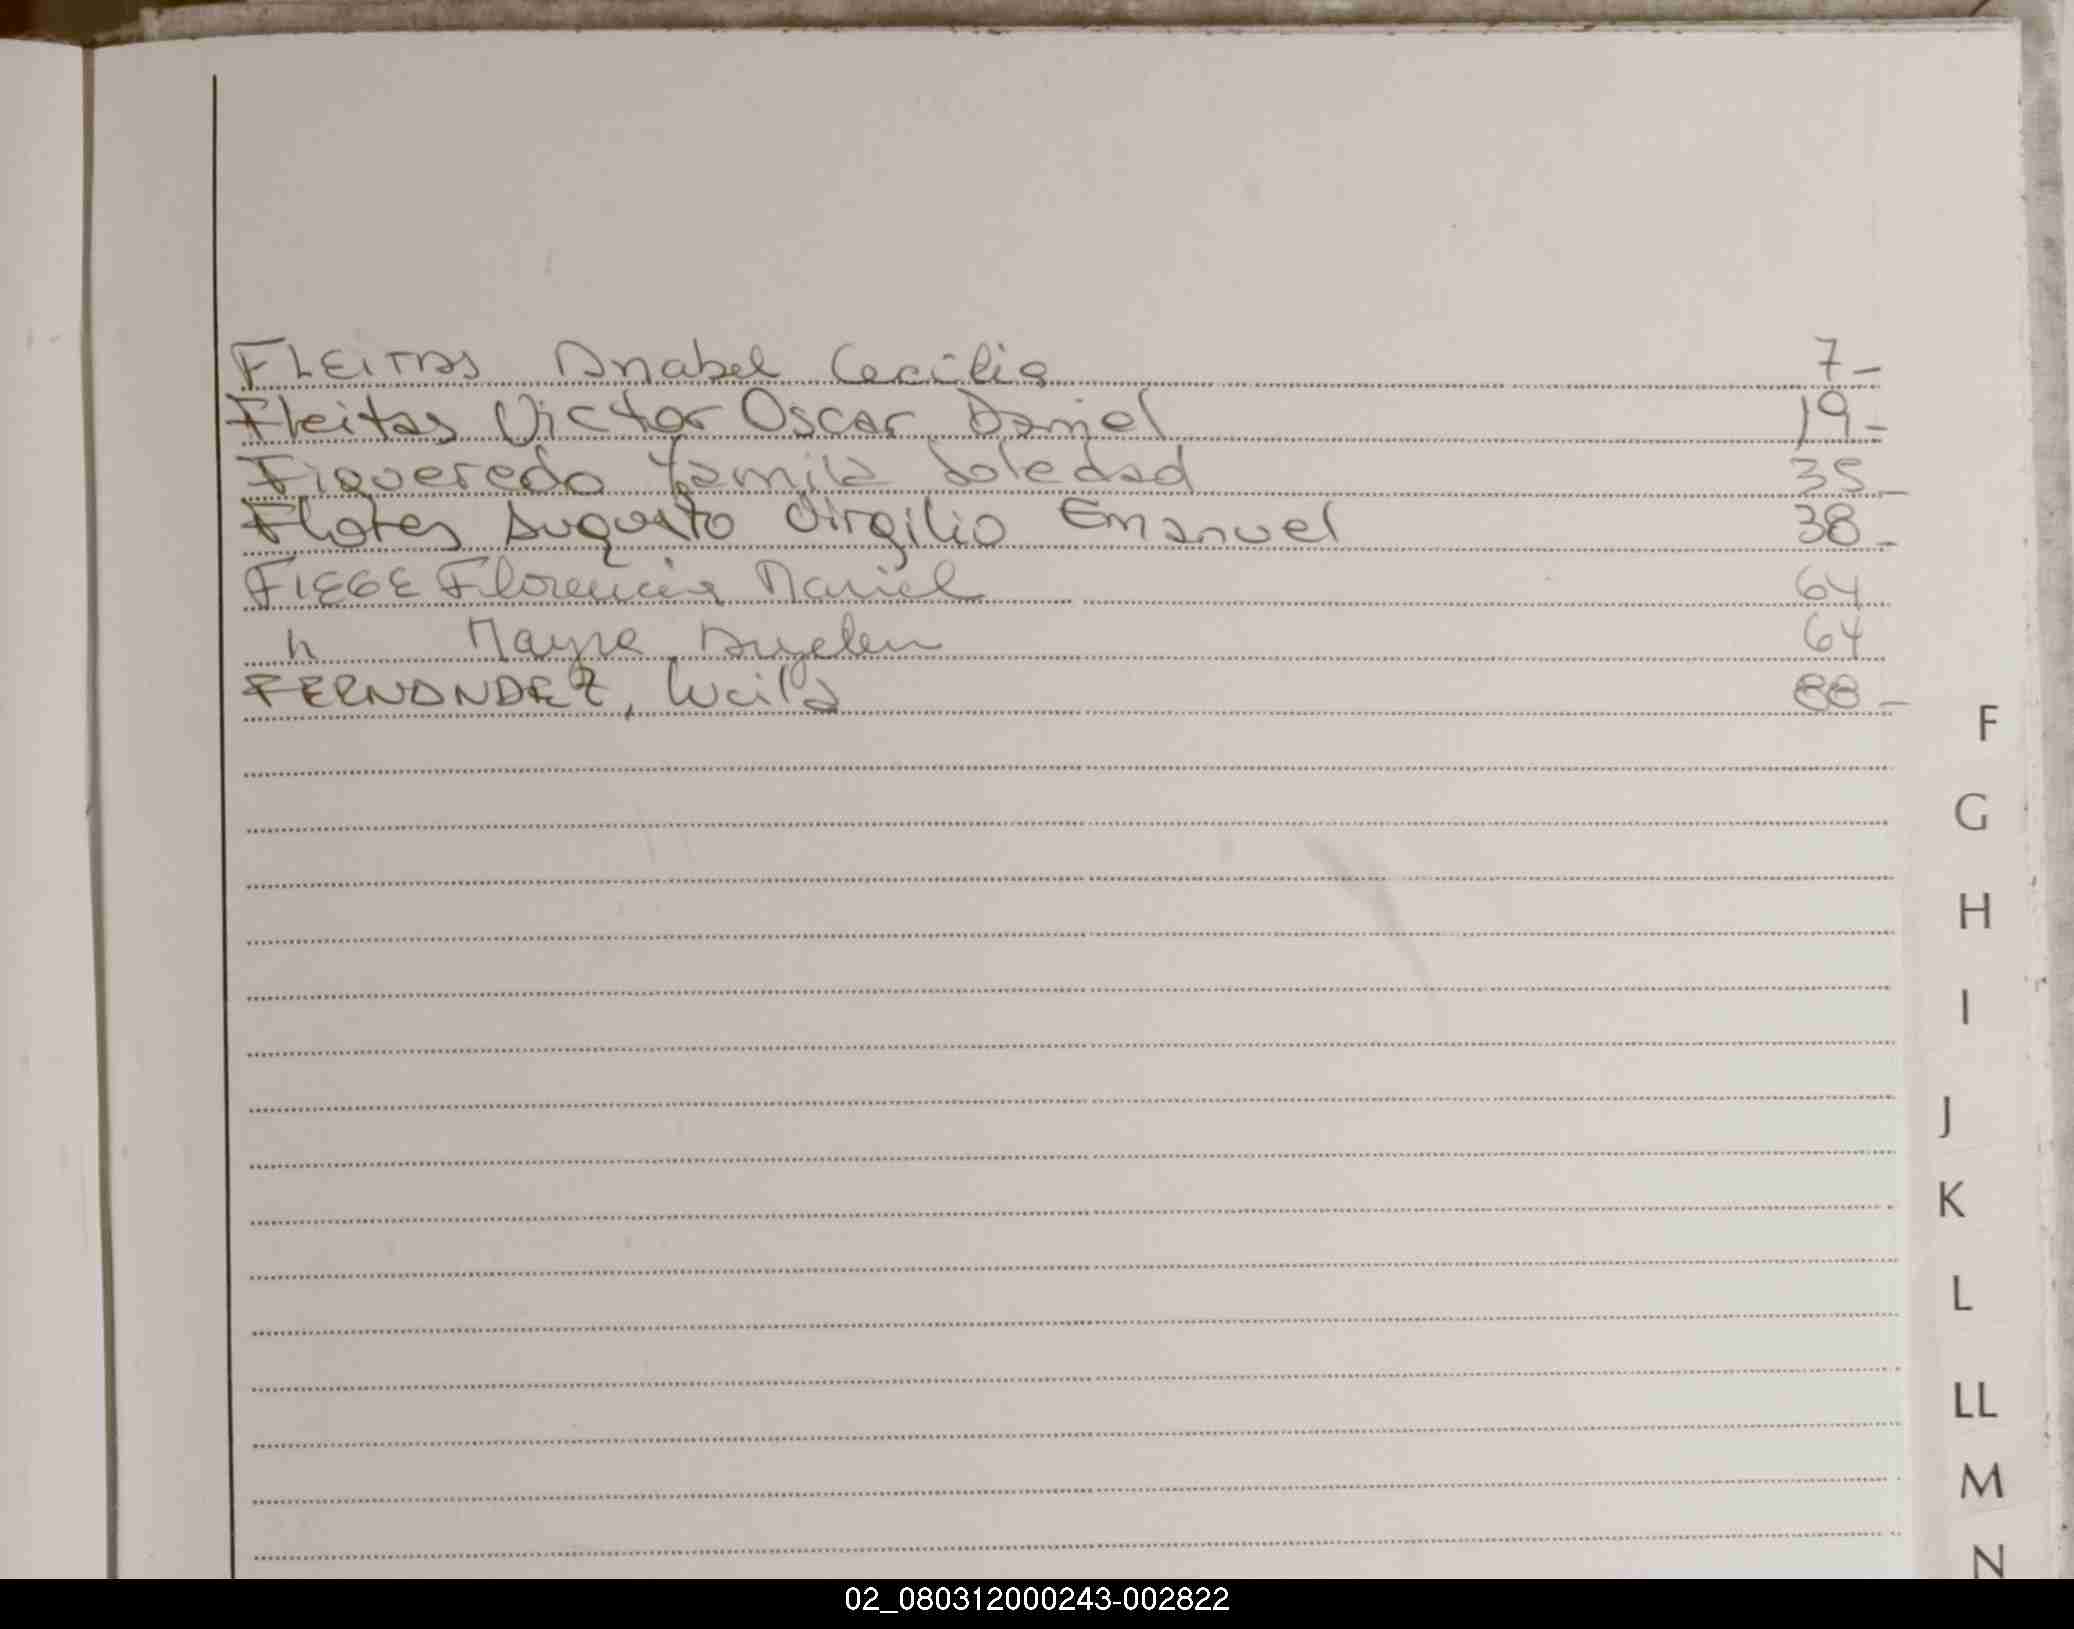 FLEITAS Anabel Cecilia 7-
Fleitas Victor Oscar Daniel 19-
Figueredo Yamila Soledad 35-
Flores Augusto Virgilio Emanuel 38-
FIEGE Florencia Mariel 64
" Mayra Ayelen 64
FERNANDEZ, Lucila 88-
F
G
H
I
J
K
L
LL
M
N
02_080312000243-002822